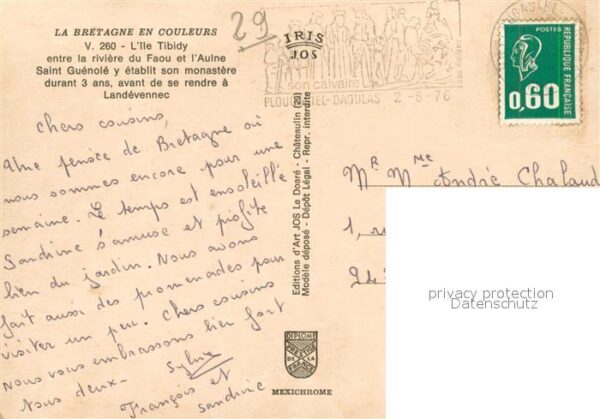 LA BRETAGNE EN COULEURS
V. 260 - L'Ile Tibidy
entre la rivière du Faou et l'Aulne
Saint Guénolé y établit son monastère
durant 3 ans, avant de se rendre à
Landévennec
29
IRIS
JOS
son calvaire
PLOUGASTEL-DAOULAS 2-8-76
POSTES
REPUBLIQUE FRANÇAISE
0,60
Chers cousins,
Une pensée de Bretagne où
nous sommes encore pour une
semaine. Le temps est ensoleillé
Sandrine s'amuse et profite
bien du jardin. Nous avons
fait aussi des promenades pour
visiter un peu. Chers cousins
Nous vous embrassons bien fort
tous deux-
Sylvie
François et
Sandrine
Editions d'Art JOS Le Doaré - Châteaulin (29)
Modèle déposé - Dépôt Légal - Repr. interdite
MEXICHROME
Mr Mme André Chalaud
1, r
privacy protection
Datenschutz